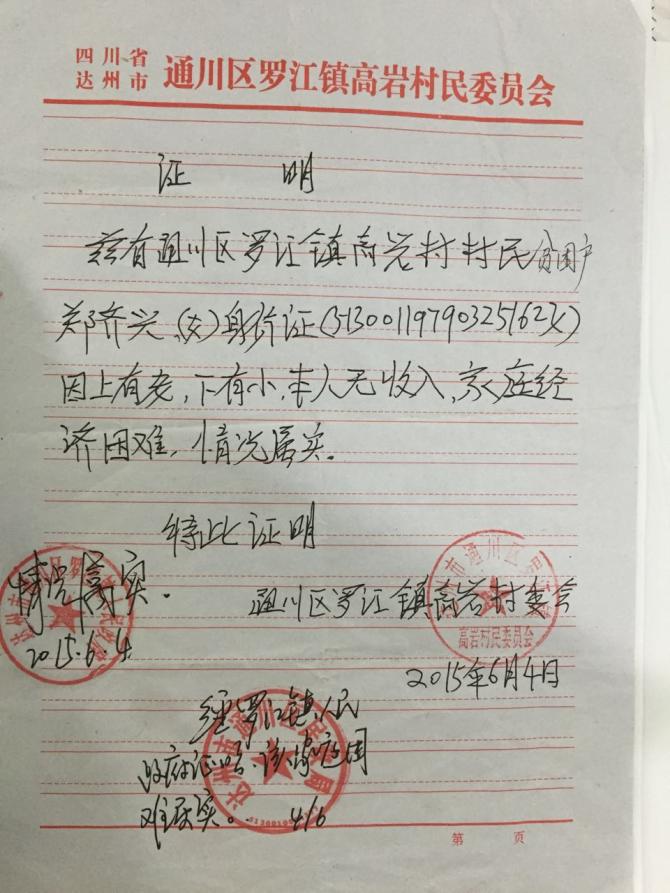 四川省
达州市
通川区罗江镇高岩村民委员会
证 明
兹有通川区罗江镇高岩村村民贫困户
郑齐兴、(女)身份证(51300119790325162X)
因上有老,下有小,本人无收入,家庭经
济困难,情况属实。
特此证明
情况属实.
2015.6.4
通川区罗江镇高岩村委会
高岩村民委员会
2015年6月4日
经罗江镇人民
政府证明、该家庭困
难属实。 4/6
第 页